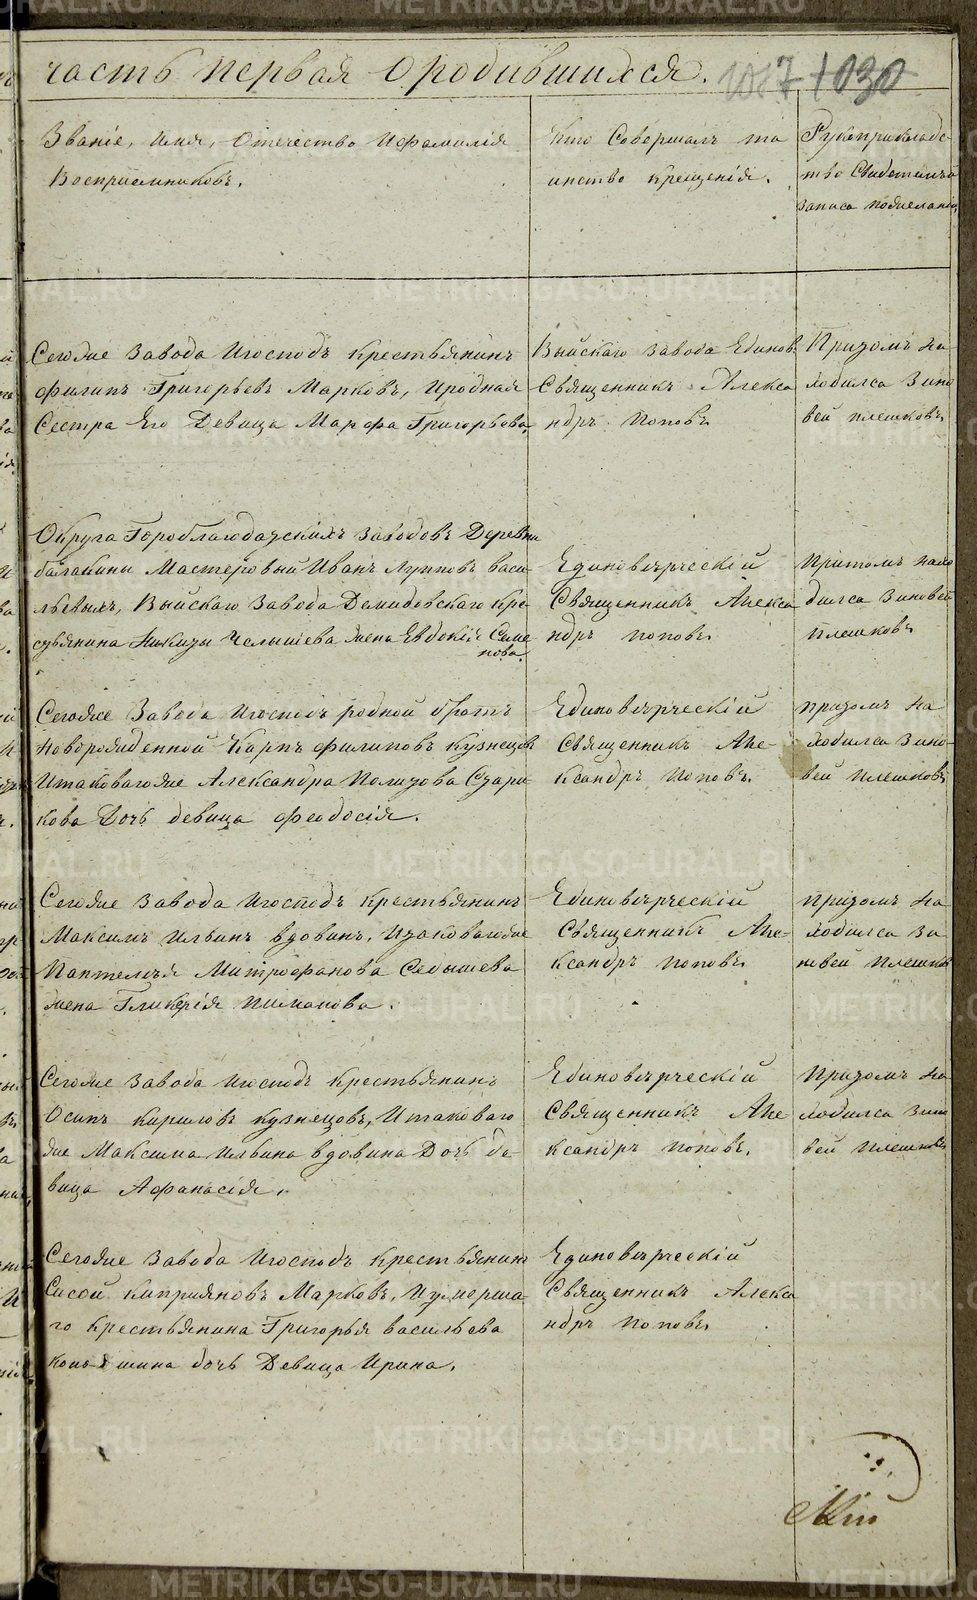 часть первая о родившихся. 1030
Званіе, имя, отечество ифамилія
Восприемниковъ.
Кто Совершалъ та
инство крещенія.
Рукоприкладс
тво Свидетелей
записа пожеланію
Сегоже Завода Игосподъ крестьянинъ
филипъ Григорьевъ Марковъ, Иродная
Сестра Его Девица Марфа Григорьева,
Выйскаго завода Единов.
Священникъ Алекса
ндръ Поповъ
Притомъ На
ходился Зино
вей плешковъ
Округа Гороблагодатскихъ заводовъ Деревни
балакины Мастеровый Иванъ Лупповъ васи
льевыхъ, Выйскаго Завода Демидовскаго кре
стьянина Никиты Челышева жена Евдокія Семе
нова.
Единоверческій
Священникъ Алекса
ндръ поповъ
притомъ нахо
дился Зиновей
Плешковъ
Сегоже Завода Игосподъ родной братъ
новорожденной Карпъ филиповъ кузнецовъ
Итаковагоже Александра Полиуова Стари
кова Дочь девица феодосія.
Единоверческій
Священникъ Але-
ксандръ Поповъ.
притомъ На
ходился Зино-
вей плешковъ
Сегоже Завода Игосподъ крестьянинъ
Максимъ Ильинъ вдовинъ, Итаковагоже
Пантелея Митрофанова Седышева
жена Гликерія Пиманова.
Единоверческій
Священникъ Але-
ксандръ Поповъ
притомъ На
ходился Зи
новей Плешков
Сегоже Завода Игосподъ крестьянинъ
Осипъ кириловъ кузнецовъ, Итаковаго
же Максима Ильина вдовина Дочь де-
вица Афанасія.
Единоверческій
Священникъ Але-
ксандръ Поповъ.
Притомъ На
ходился Зино
вей Плешковъ
Сегоже Завода Игосподъ крестьянинъ
Сысой киприяновъ Марковъ, Иумерша-
го крестьянина Григорья васильева
шина дочь Девица Ирина.
Единоверческій
Священникъ Алекса
ндръ Поповъ
METRIKI.GASO-URAL.RU